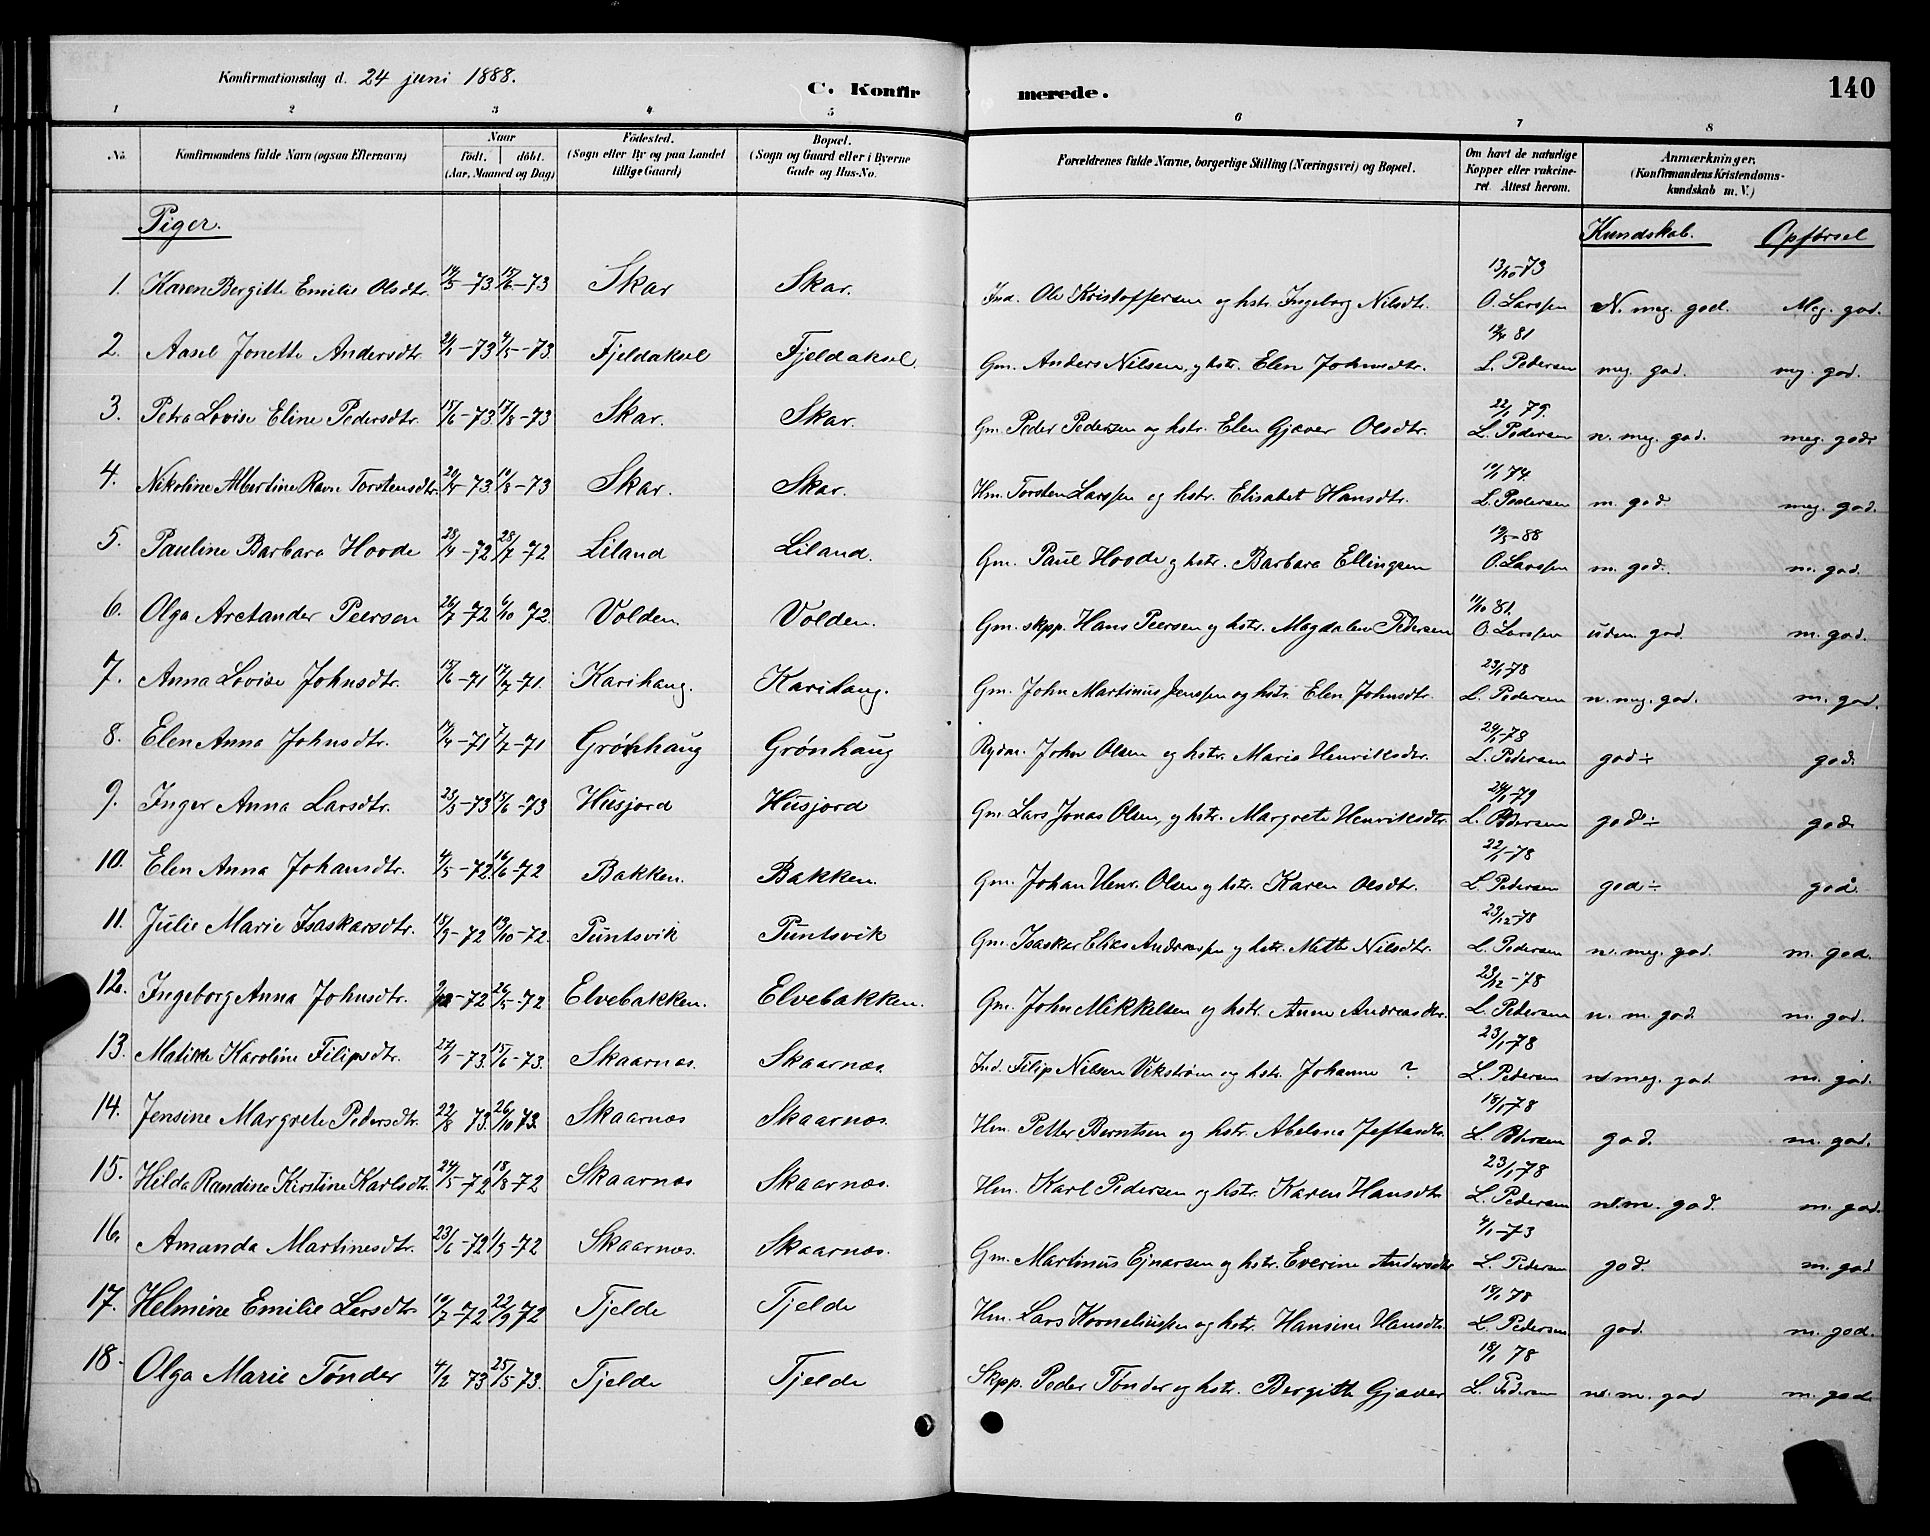 Konfirmationsdag d. 24 juni 1888.
C. Konfirmerede.
140
1 2 3 4 5 6 7 8
No.
Konfirmandens fulde Navn (ogsaa Efternavn)
Naar født. døbt. (Aar, Maaned og Dag)
Fødested. (Sogn eller By og paa Landet tillige Gaard)
Bopæl. (Sogn og Gaard eller i Byerne Gade og Hus-No.
Forældrenes fulde Navne, borgerlige Stilling (Næringsvei) og Bopæl.
Om havt de naturlige Kopper eller vakcineret. Attest herom.
Anmærkninger, (Konfirmandens Kristendomskundskab m. V.)
Piger. Kundskab. Opførsel
1. Karen Bergitte Emilie Olsdtr. Skar Skar. Ind. Ole Kristoffersen og hstr. Ingeborg Nilsdtr. 13/10-73 O. Larssen N. meg. god. Meg. god.
2. Aasel Jonette Andersdtr. Fjeldaksel Fjeldaksel. Gm. Anders Nilsen, og hstr. Elen Johnsdtr. 81 L. Pedersen meg. god. mg. god.
3. Petra Lovise Eline Pedersdtr. 15/6-73. 17/8-73 Skar. Skar. Gm. Peder Pedersen og hstr. Elen Gjæver Olsdtr. 22/1 79. L. Pedersen n. meg. god. meg. god
4. Nikoline Albertine Ravn Torstensdtr. 10/8-73 Skar. Skar. Hm. Torsten Larssen og hstr. Elisabet Hansdtr. 74. L. Pedersen m. god. meg. god.
5. Pauline Barbara Hovde 28/4-72 28/7-72 Liland Liland. Gm. Paul Hovde og hstr. Barbara Ellingsen 88 O. Larssen m. god. m. god.
6. Olga Arctander Peersen 26/7-72 6/10 72. Volden. Volden. Gm. skpp. Hans Peersen og hstr. Magdalen Pedersen 11/10 81. O. Larssen udm. god m. god.
7. Anna Lovise Johnsdtr. 71 71. Karihaug. Karihaug. Gm. John Martinus Jenssen og hstr. Elen Johnsdtr. 23/1-78 L. Pedersen n. meg. god. m. god.
8. Elen Anna Johnsdtr. 71 71 Grønhaug Grønhaug Rydm. Johan Olsen og hstr. Marie Henriksdtr. 78 L. Pedersen god ÷ god.
9. Inger Anna Larsdtr. 23/3-73 15/6-73 Husjord Husjord Gm. Lars Jonas Olsen, og hstr. Margrete Henriksdtr. 24/1-79 L. Pedersen god ÷ god.
10. Elen Anna Johansdtr. 4/5-72. 16/6-72 Bakken. Bakken. Gm. Johan Henr. Olsen og hstr. Karen Olsdtr. 22/1-78 L. Pedersen god ÷ god.
11. Julie Marie Isaskarsdtr. 18/9-72 13/10-72. Puntsvik Puntsvik Gm. Isaskar Elias Andreassen og hstr. Mette Nilsdtr. 23/12-78 L. Pedersen n. meg. god. m. god.
12. Ingeborg Anna Johnsdtr. 72 26/5-72. Elvebakken. Elvebakken. Gm. John Mikkelsen og hstr. Anne Andreasdtr. 23/12-78 L. Pedersen n. m. god. m. god.
13. Matilde Karoline Filipsdtr. 27/1-73. 15/6-73. Skaarnæs. Skaarnæs. Ind. Filip Nilsen Vikstrøm og hstr. Johanne ? 23/1-78 L. Pedersen n. meg. god m. god.
14. Jensine Margrete Pedersdtr. 22/8 73. 26/10 73. Skaarnæs Skaarnæs. Hm. Petter Berntsen og hstr. Abelone Jeftasdtr. 18/1-78 L. Pedersen god. m. god.
15. Hilda Randine Kirstine Karlsdtr. 24/5-72 18/8-72 Skaarnæs Skaarnæs. Hm. Karl Pedersen og hstr. Karen Hansdtr 23/1-78 L. Pedersen n. m. god. m. god.
16. Amanda Martinesdtr. 23/6-72 1/9-72 Skaarnæs. Skaarnæs. Gm. Martinus Ejnarsen og hstr. Everine Andersdtr 4/1-73 L. Pedersen god. m. god
17. Helmine Emilie Larsdtr 72 22/9 72 Tjelde Tjelde Hm. Lars Korneliussen og hstr. Hansine Hansdtr. 78 L. Pedersen god. m. god.
18. Olga Marie Tønder 4/2 73 25/5 73. Tjelde Tjelde Skpp. Peder Tønder og hstr. Bergitte Gjæver 18/1 78 L. Pedersen n. m. god m. god